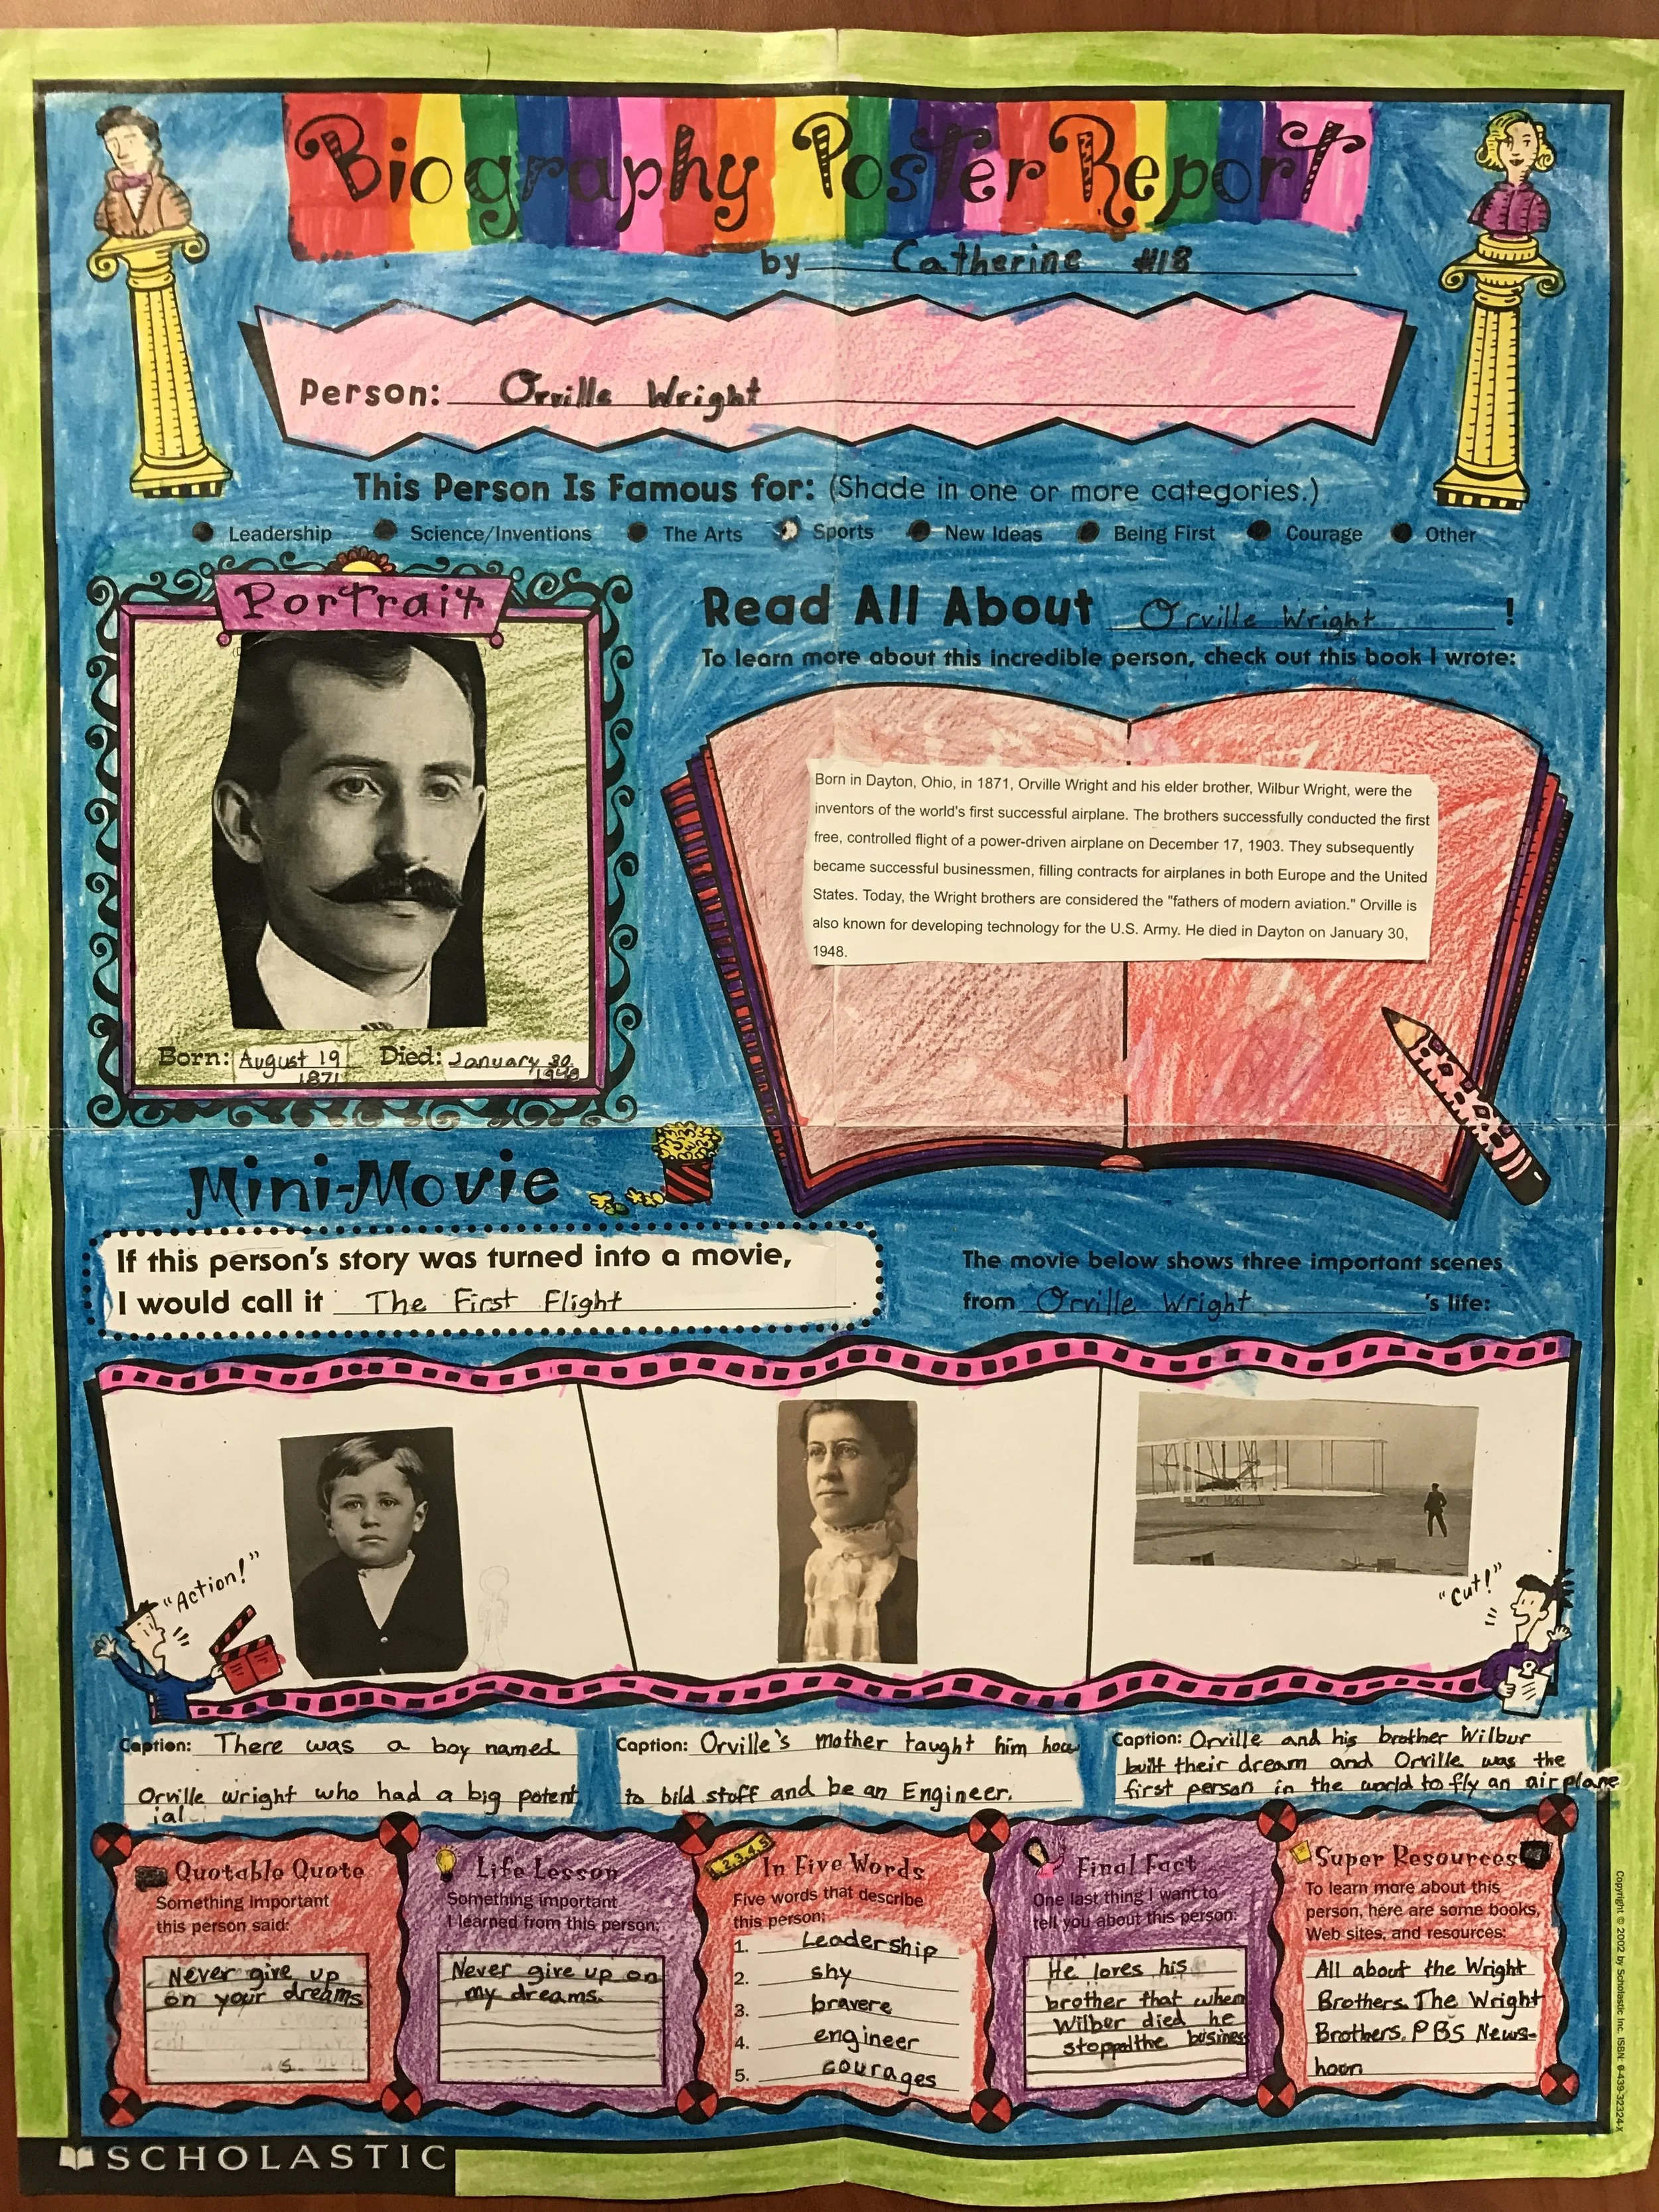 Biography Poster Report
by Catherine #18
Person: Orville Wright
This Person Is Famous for: (Shade in one or more categories.)
Leadership Science/Inventions The Arts Sports New Ideas Being First Courage Other
Portrait
Born: August 19 1871
Died: January 30, 1948
Read All About Orville Wright!
To learn more about this incredible person, check out this book I wrote:
Born in Dayton, Ohio, in 1871, Orville Wright and his elder brother, Wilbur Wright, were the
inventors of the world's first successful airplane. The brothers successfully conducted the first
free, controlled flight of a power-driven airplane on December 17, 1903. They subsequently
became successful businessmen, filling contracts for airplanes in both Europe and the United
States. Today, the Wright brothers are considered the "fathers of modern aviation." Orville is
also known for developing technology for the U.S. Army. He died in Dayton on January 30,
1948.
Mini-Movie
If this person's story was turned into a movie,
I would call it The First Flight.
The movie below shows three important scenes
from Orville Wright's life:
"Action!"
"Cut!"
Caption: There was a boy named
Orville wright who had a big potent
ial.
Caption: Orville's mother taught him how
to bild stoff and be an Engineer.
Caption: Orville and his brother Wilbur
built their dream and Orville was the
first person in the world to fly an airplane
Quotable Quote
Something important
this person said:
Never give up
on your dreams
Life Lesson
Something important
I learned from this person:
Never give up on
my dreams.
1,2,3,4,5
In Five Words
Five words that describe
this person:
1. Leadership
2. shy
3. bravere
4. engineer
5. courages
Final Fact
One last thing I want to
tell you about this person:
He loves his
brother that when
Wilber died he
stopped the busines
Super Resources
To learn more about this
person, here are some books,
Web sites, and resources:
All about the Wright
Brothers. The Wright
Brothers. PBS News-
hoon
SCHOLASTIC
Copyright © 2002 by Scholastic Inc. ISBN: 0-439-32324-X